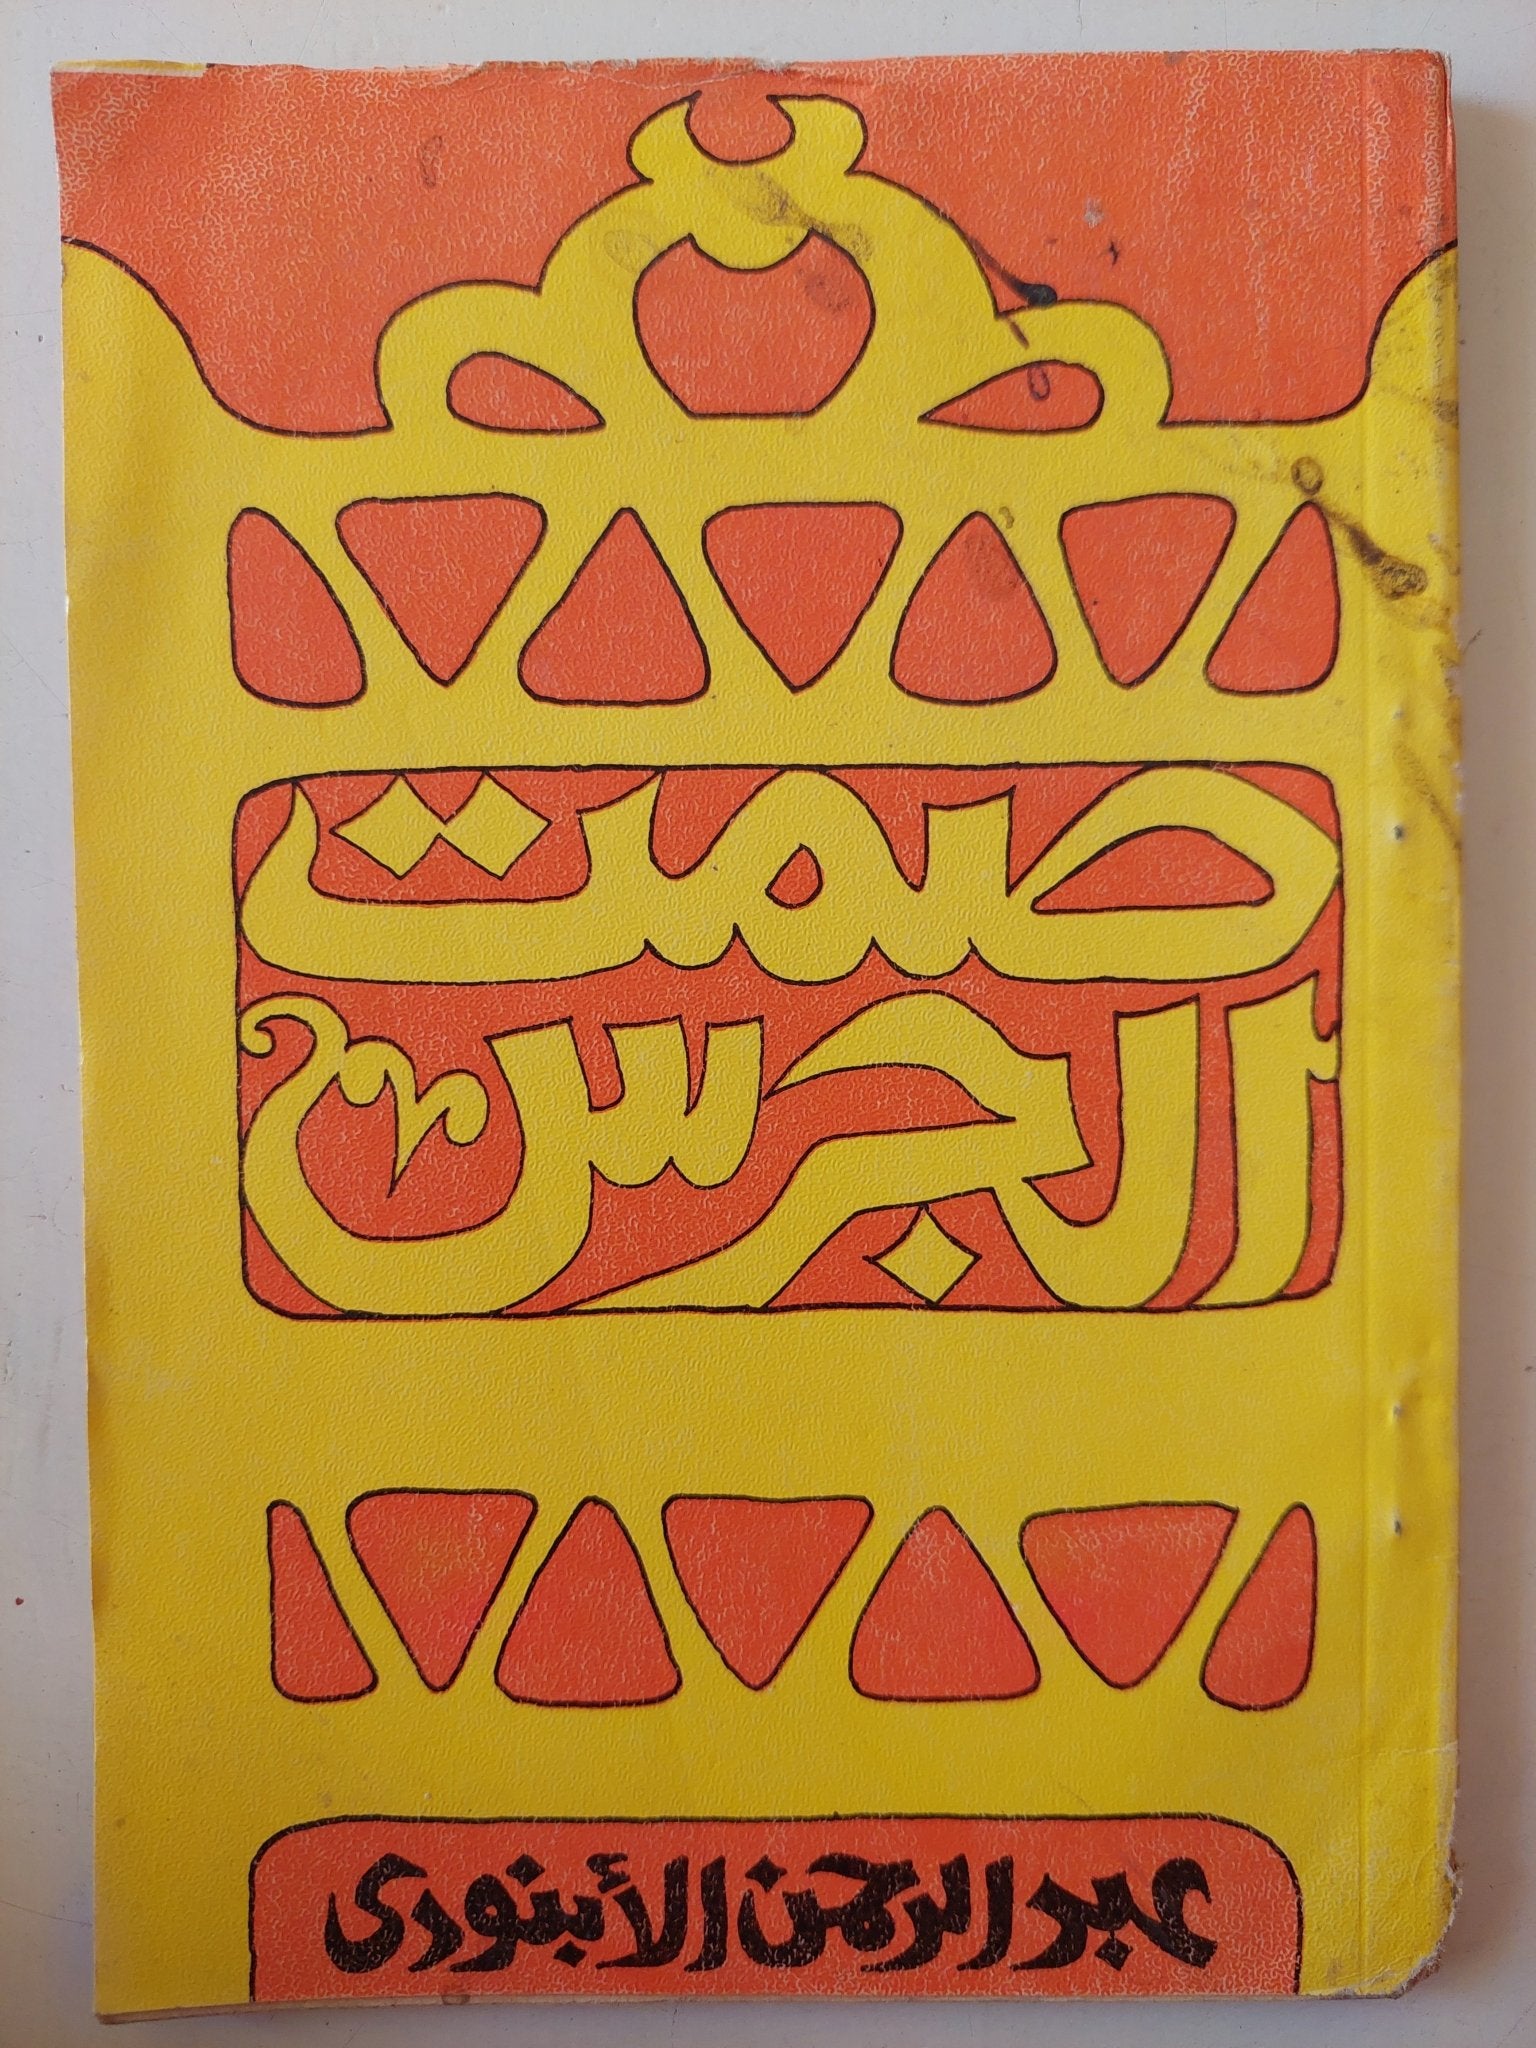 صمت
الجرس
عبد الرحمن الأبنودى